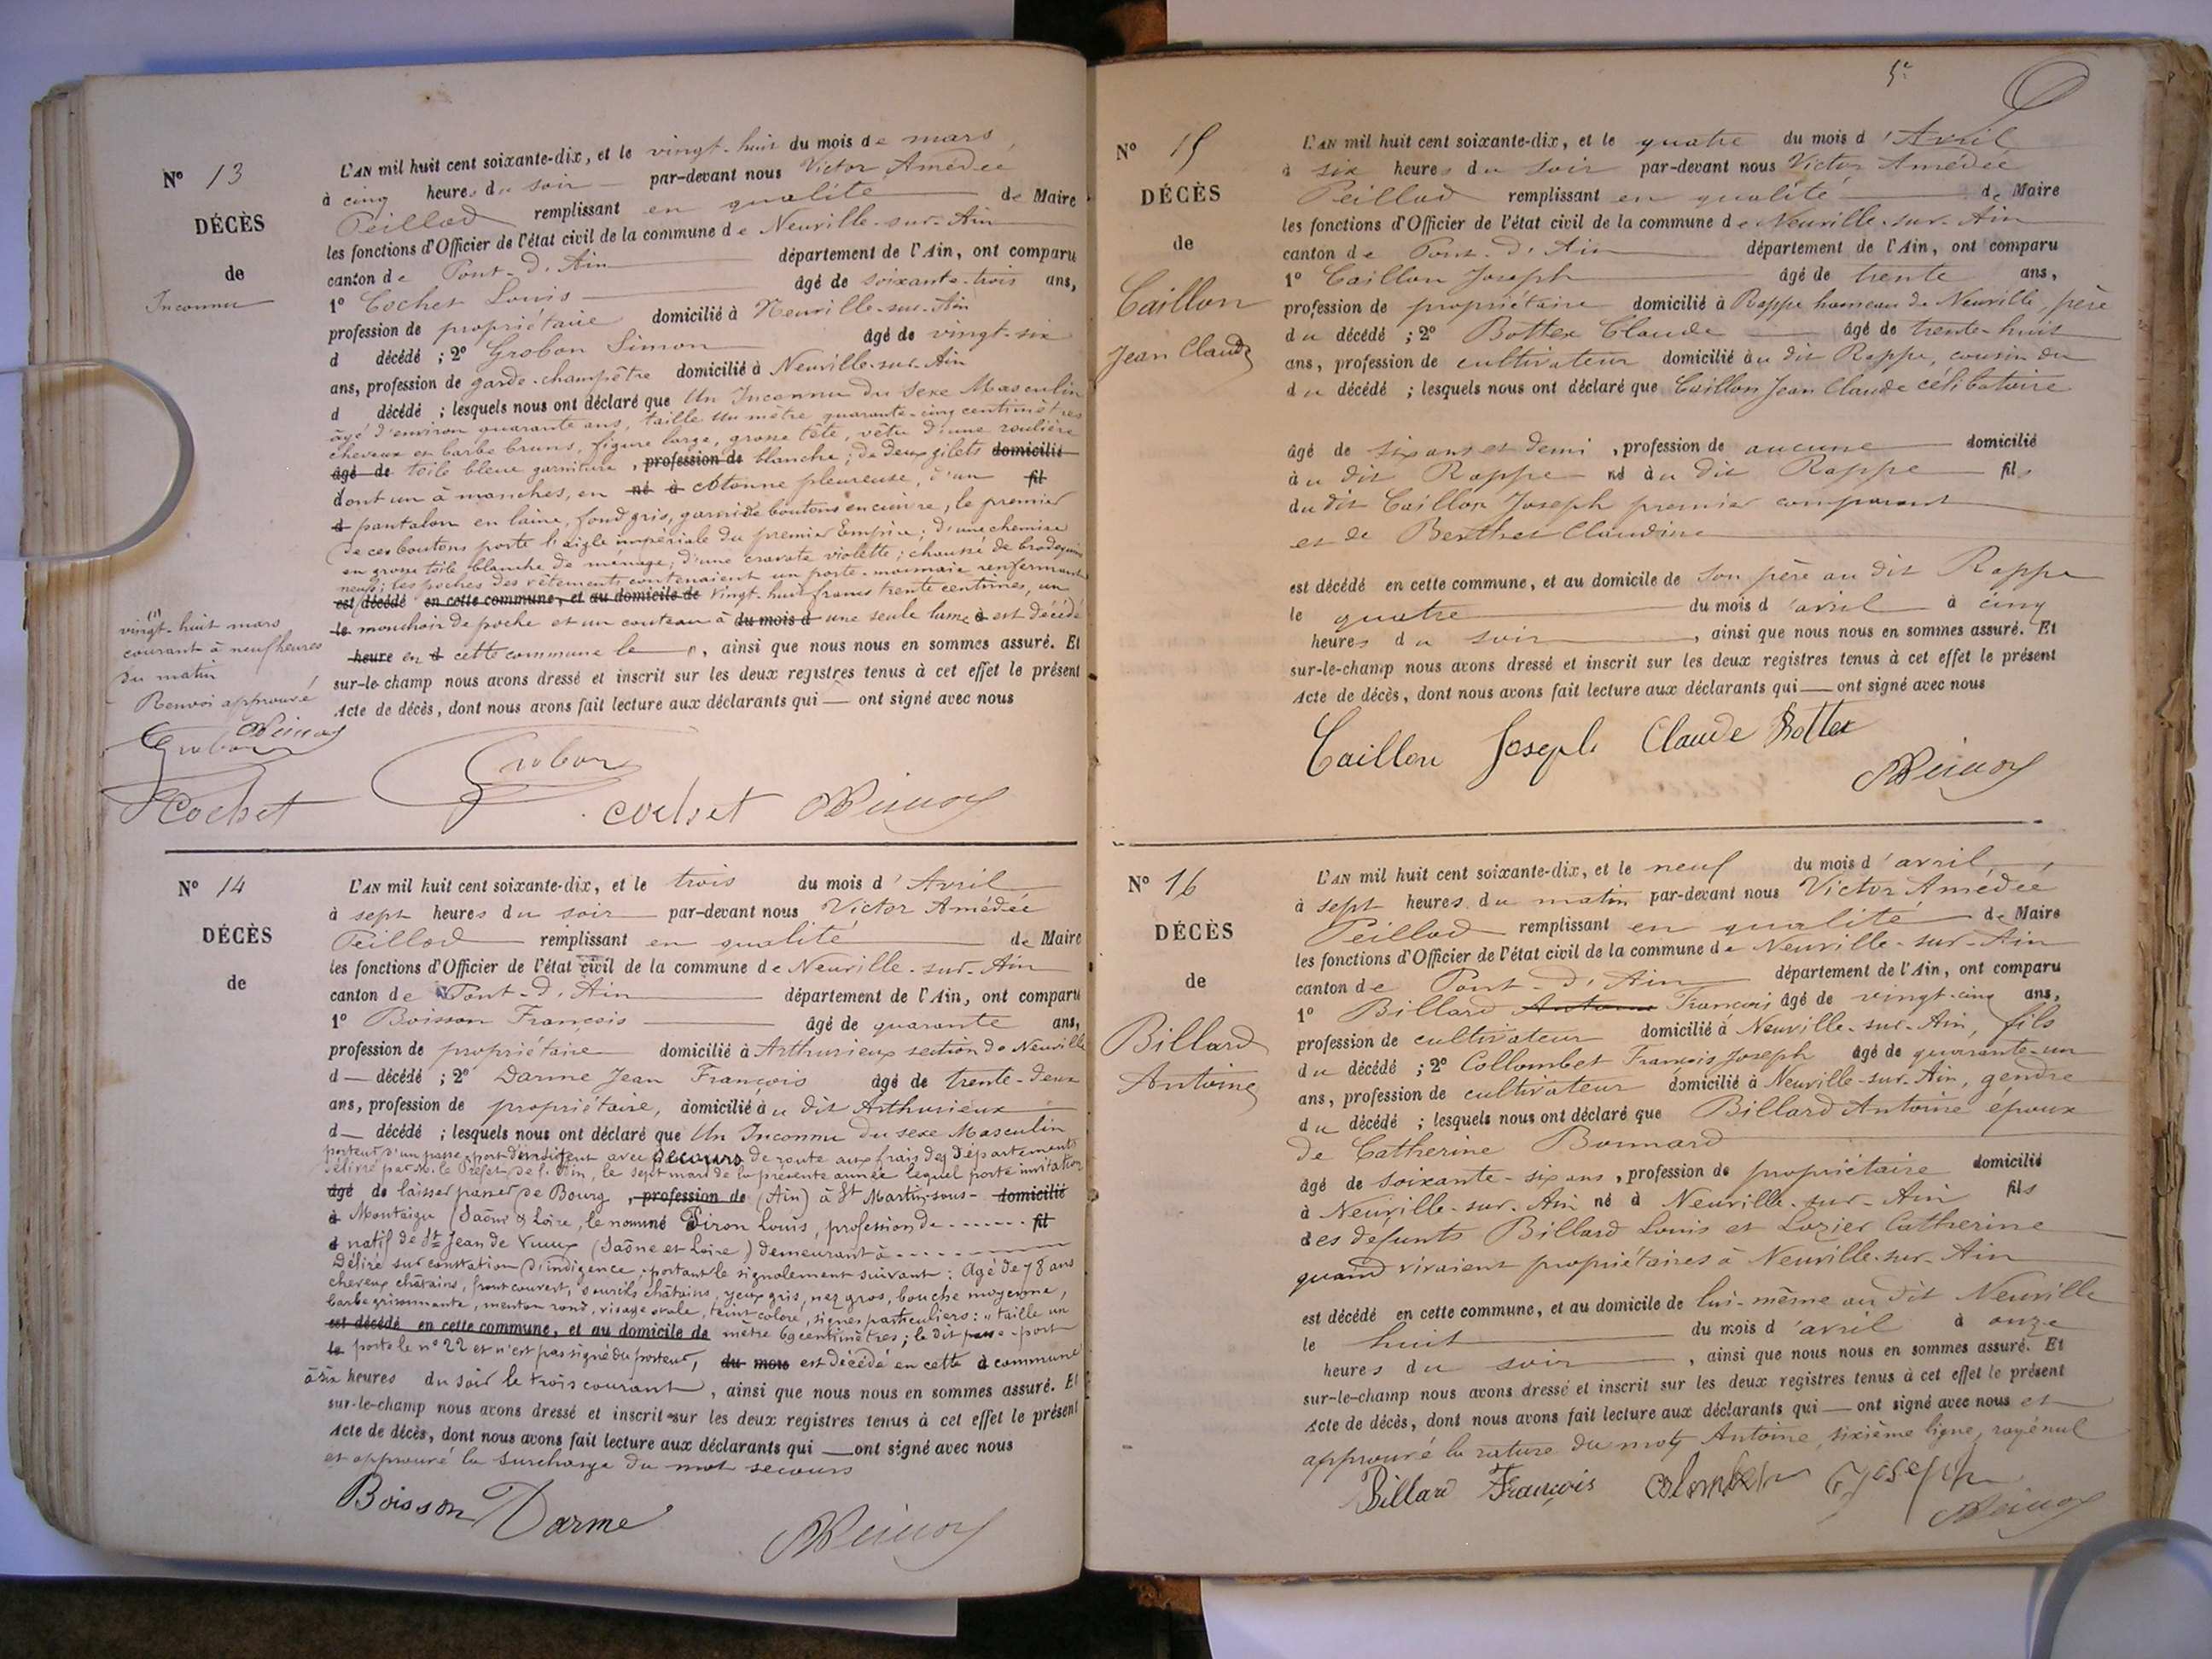 N° 13
DÉCÈS
de
Inconnu
L'AN mil huit cent soixante-dix, et le vingt-huit du mois de mars
à cinq heures du soir par-devant nous Victor Amédée
Peillod remplissant en qualité de Maire
les fonctions d'Officier de l'état civil de la commune de Neuville-sur-Ain
canton de Pont-d'Ain département de l'Ain, ont comparu
1° Cochet Louis âgé de soixante-trois ans,
profession de propriétaire domicilié à Neuville-sur-Ain
d décédé ; 2° Grobon Simon âgé de vingt-six
ans, profession de garde-champêtre domicilié à Neuville-sur-Ain
d décédé ; lesquels nous ont déclaré que Un Inconnu du sexe Masculin
âgé d'environ quarante ans, taille un mètre quarante-cinq centimètres
cheveux et barbe bruns, figure large, grosse tête, vêtu d'une roulière
âgé de toile bleue garniture, profession de blanche; de deux gilets domicilié
dont un à manches, en né à cotonne pleureuse, d'un fil
d pantalon en laine, fond gris, garni de boutons en cuivre, le premier
de ces boutons porte l'aigle impériale du premier Empire; d'une chemise
en grosse toile blanche de ménage; d'une cravate violette; chaussé de brodequins
neufs; les poches des vêtements contenaient un porte-monnaie renfermant
est décédé en cette commune, et au domicile de vingt-huit francs trente centimes, un
le mouchoir de poche et un couteau à du mois d une seule lame à est décédé
heure en d cette commune le (1), ainsi que nous nous en sommes assuré. Et
sur-le-champ nous avons dressé et inscrit sur les deux registres tenus à cet effet le présent
Acte de décès, dont nous avons fait lecture aux déclarants qui — ont signé avec nous
(1)
vingt-huit mars
courant à neuf heures
du matin
Renvoi approuvé
Grobon
Cochet
Grobon
Cochet
N° 14
DÉCÈS
de
L'AN mil huit cent soixante-dix, et le trois du mois d'Avril
à sept heures du soir par-devant nous Victor Amédée
Peillod remplissant en qualité de Maire
les fonctions d'Officier de l'état civil de la commune de Neuville-sur-Ain
canton de Pont-d'Ain département de l'Ain, ont comparu
1° Boisson François âgé de quarante ans,
profession de propriétaire domicilié à Arthurieux section de Neuville
d — décédé ; 2° Darme Jean François âgé de trente-deux
ans, profession de propriétaire, domicilié au dit Arthurieux
d — décédé ; lesquels nous ont déclaré que Un Inconnu du sexe Masculin
porteur d'un passe-port d'indigent avec secours de route aux frais des départements
délivré par M. le Préfet de l'Ain, le sept mars de la présente année lequel porte invitation
âgé de laisser passer de Bourg, profession de (Ain) à St Martin-sous- domicilié
à Montaigu (Saône & Loire, le nommé Piron Louis, profession de ...... fil
d natif de St Jean de Vaux (Saône et Loire) demeurant à ......
Délivré sur constation d'indigence; portant le signalement suivant: Agé de 78 ans
cheveux châtains, front couvert, sourcils châtains, yeux gris, nez gros, bouche moyenne,
barbe grisonnante, menton rond, visage ovale, teint coloré, signes particuliers: " taille un
est décédé en cette commune, et au domicile de mètre 69 centimètres; le dit passe-port
le porte le n° 22 et n'est pas signé du porteur, du mois est décédé en cette d commune
à six heures du soir le trois courant, ainsi que nous nous en sommes assuré. Et
sur-le-champ nous avons dressé et inscrit sur les deux registres tenus à cet effet le présent
Acte de décès, dont nous avons fait lecture aux déclarants qui — ont signé avec nous
et approuvé la surcharge du mot secours
Boisson Darme
N° 15
DÉCÈS
de
Caillon
Jean Claude
L'AN mil huit cent soixante-dix, et le quatre du mois d'Avril
à six heures du soir par-devant nous Victor Amédée
Peillod remplissant en qualité de Maire
les fonctions d'Officier de l'état civil de la commune de Neuville-sur-Ain
canton de Pont-d'Ain département de l'Ain, ont comparu
1° Caillon Joseph âgé de trente ans,
profession de propriétaire domicilié à Rappe hameau de Neuville, père
du décédé ; 2° Bottex Claude âgé de trente-huit
ans, profession de cultivateur domicilié au dit Rappe, cousin du
du décédé ; lesquels nous ont déclaré que Caillon Jean Claude célibataire
âgé de six ans et demi, profession de aucune domicilié
au dit Rappe né au dit Rappe fils
du dit Caillon Joseph premier comparant
et de Berthet Claudine
est décédé en cette commune, et au domicile de son père au dit Rappe
le quatre du mois d'avril à cinq
heures du soir, ainsi que nous nous en sommes assuré. Et
sur-le-champ nous avons dressé et inscrit sur les deux registres tenus à cet effet le présent
Acte de décès, dont nous avons fait lecture aux déclarants qui — ont signé avec nous
Caillon Joseph Claude Bottex
N° 16
DÉCÈS
de
Billard
Antoine
L'AN mil huit cent soixante-dix, et le neuf du mois d'avril
à sept heures du matin par-devant nous Victor Amédée
Peillod remplissant en qualité de Maire
les fonctions d'Officier de l'état civil de la commune de Neuville-sur-Ain
canton de Pont-d'Ain département de l'Ain, ont comparu
1° Billard Antoine François âgé de vingt-cinq ans,
profession de cultivateur domicilié à Neuville-sur-Ain, fils
du décédé ; 2° Collombet François Joseph âgé de quarante-un
ans, profession de cultivateur domicilié à Neuville-sur-Ain, gendre
du décédé ; lesquels nous ont déclaré que Billard Antoine époux
de Catherine Bonnard
âgé de soixante-six ans, profession de propriétaire domicilié
à Neuville-sur-Ain né à Neuville-sur-Ain fils
des défunts Billard Louis et Lozier Catherine
quand vivaient propriétaires à Neuville-sur-Ain
est décédé en cette commune, et au domicile de lui-même au dit Neuville
le huit du mois d'avril à onze
heures du soir, ainsi que nous nous en sommes assuré. Et
sur-le-champ nous avons dressé et inscrit sur les deux registres tenus à cet effet le présent
Acte de décès, dont nous avons fait lecture aux déclarants qui — ont signé avec nous et
approuvé la rature du mot Antoine, sixième ligne, rayé nul
Billard François colombet Joseph